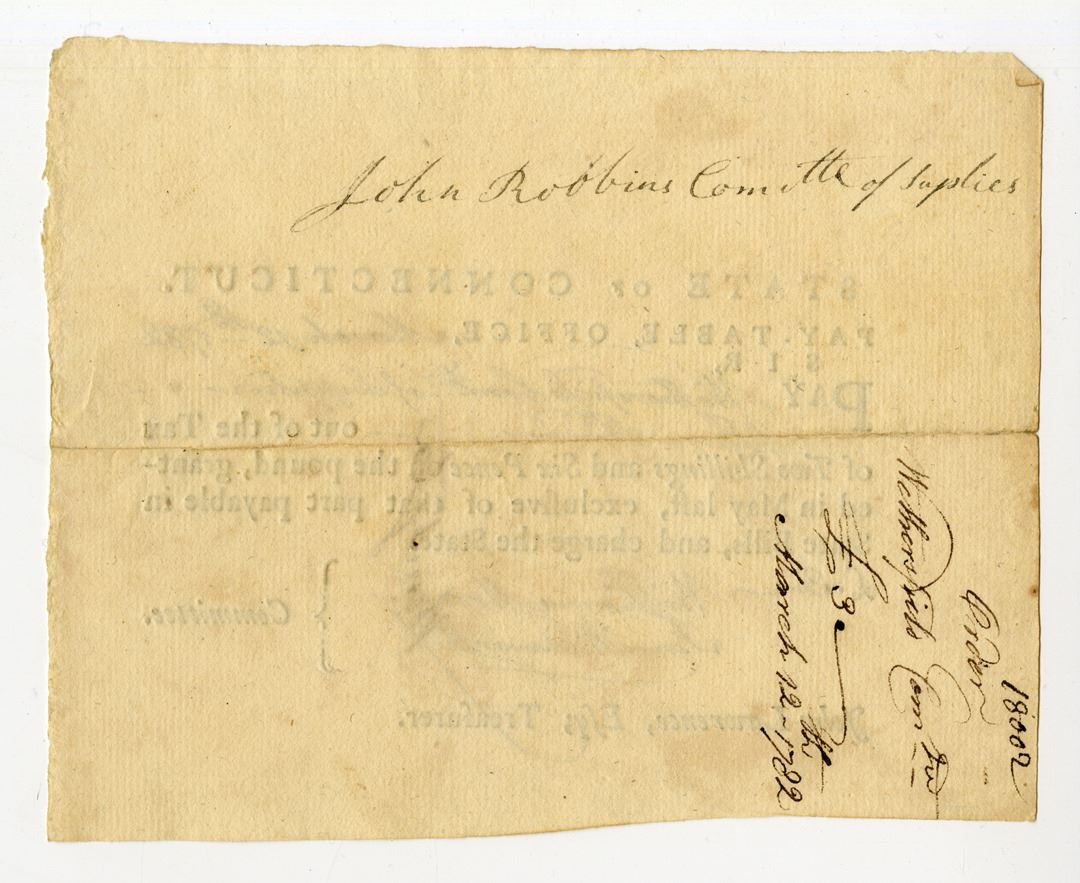 John Robbins Comitte of Suplies
STATE OF CONNECTICUT.
PAY-TABLE OFFICE, March 12th 1782
SIR,
PAY
out of the Tax
of Two Shillings and Six Pence on the pound, grant-
ed in May last, exclusive of that part payable in
State Bills, and charge the State.
Committee.
John Lawrence, Esq; Treasurer.
18002
Order
Wethersfield Com
£3.
March 12th 1782